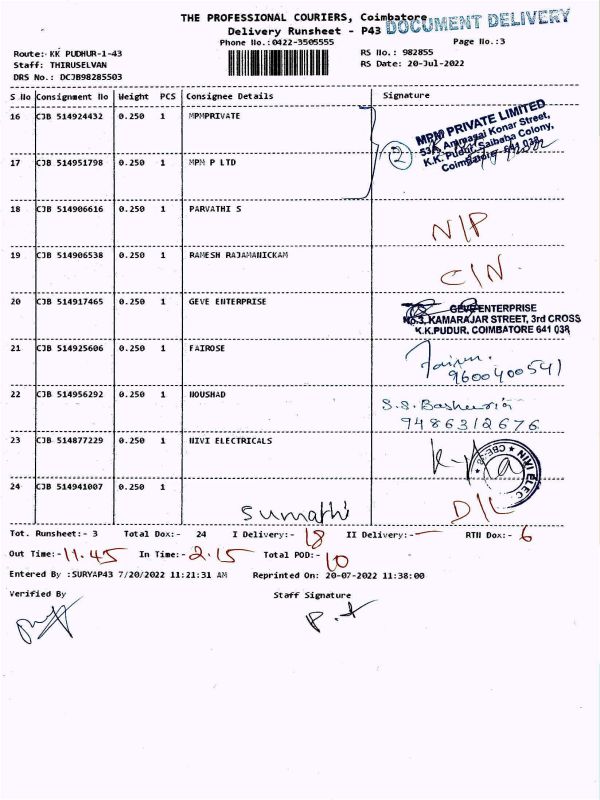 THE PROFESSIONAL COURIERS, Coimbatore
DOCUMENT DELIVERY
Delivery Runsheet - P43
Phone No.:0422-3505555
Page No.:3
Route: KK PUDHUR-1-43
RS No.: 982855
Staff: THIRUSELVAN
RS Date: 20-Jul-2022
DRS No.: DCJB98285503
S No Consignment No Weight PCS Consignee Details Signature
16 CJB 514924432 0.250 1 MPMPRIVATE
MPM PRIVATE LIMITED
53A, Konar Street,
K.K. Pudur, Saibaba Colony,
Coimbatore - 641 038
2
17 CJB 514951798 0.250 1 MPM P LTD
18 CJB 514906616 0.250 1 PARVATHI S
N/P
19 CJB 514906538 0.250 1 RAMESH RAJAMANICKAM
C/N.
20 CJB 514917465 0.250 1 GEVE ENTERPRISE
GEVE ENTERPRISE
No.3, KAMARAJAR STREET, 3rd CROSS
K.K.PUDUR, COIMBATORE 641 038
21 CJB 514925606 0.250 1 FAIROSE
9600400541
22 CJB 514956292 0.250 1 NOUSHAD
9486312676
23 CJB 514877229 0.250 1 NIVI ELECTRICALS
24 CJB 514941007 0.250 1
Sumathi
D/L
Tot. Runsheet:- 3 Total Dox:- 24 I Delivery:- 18 II Delivery:- — RTN Dox:- 6
Out Time:- 11.45 In Time:- 2.15 Total POD:- 10
Entered By :SURYAP43 7/20/2022 11:21:31 AM Reprinted On: 20-07-2022 11:38:00
Verified By Staff Signature